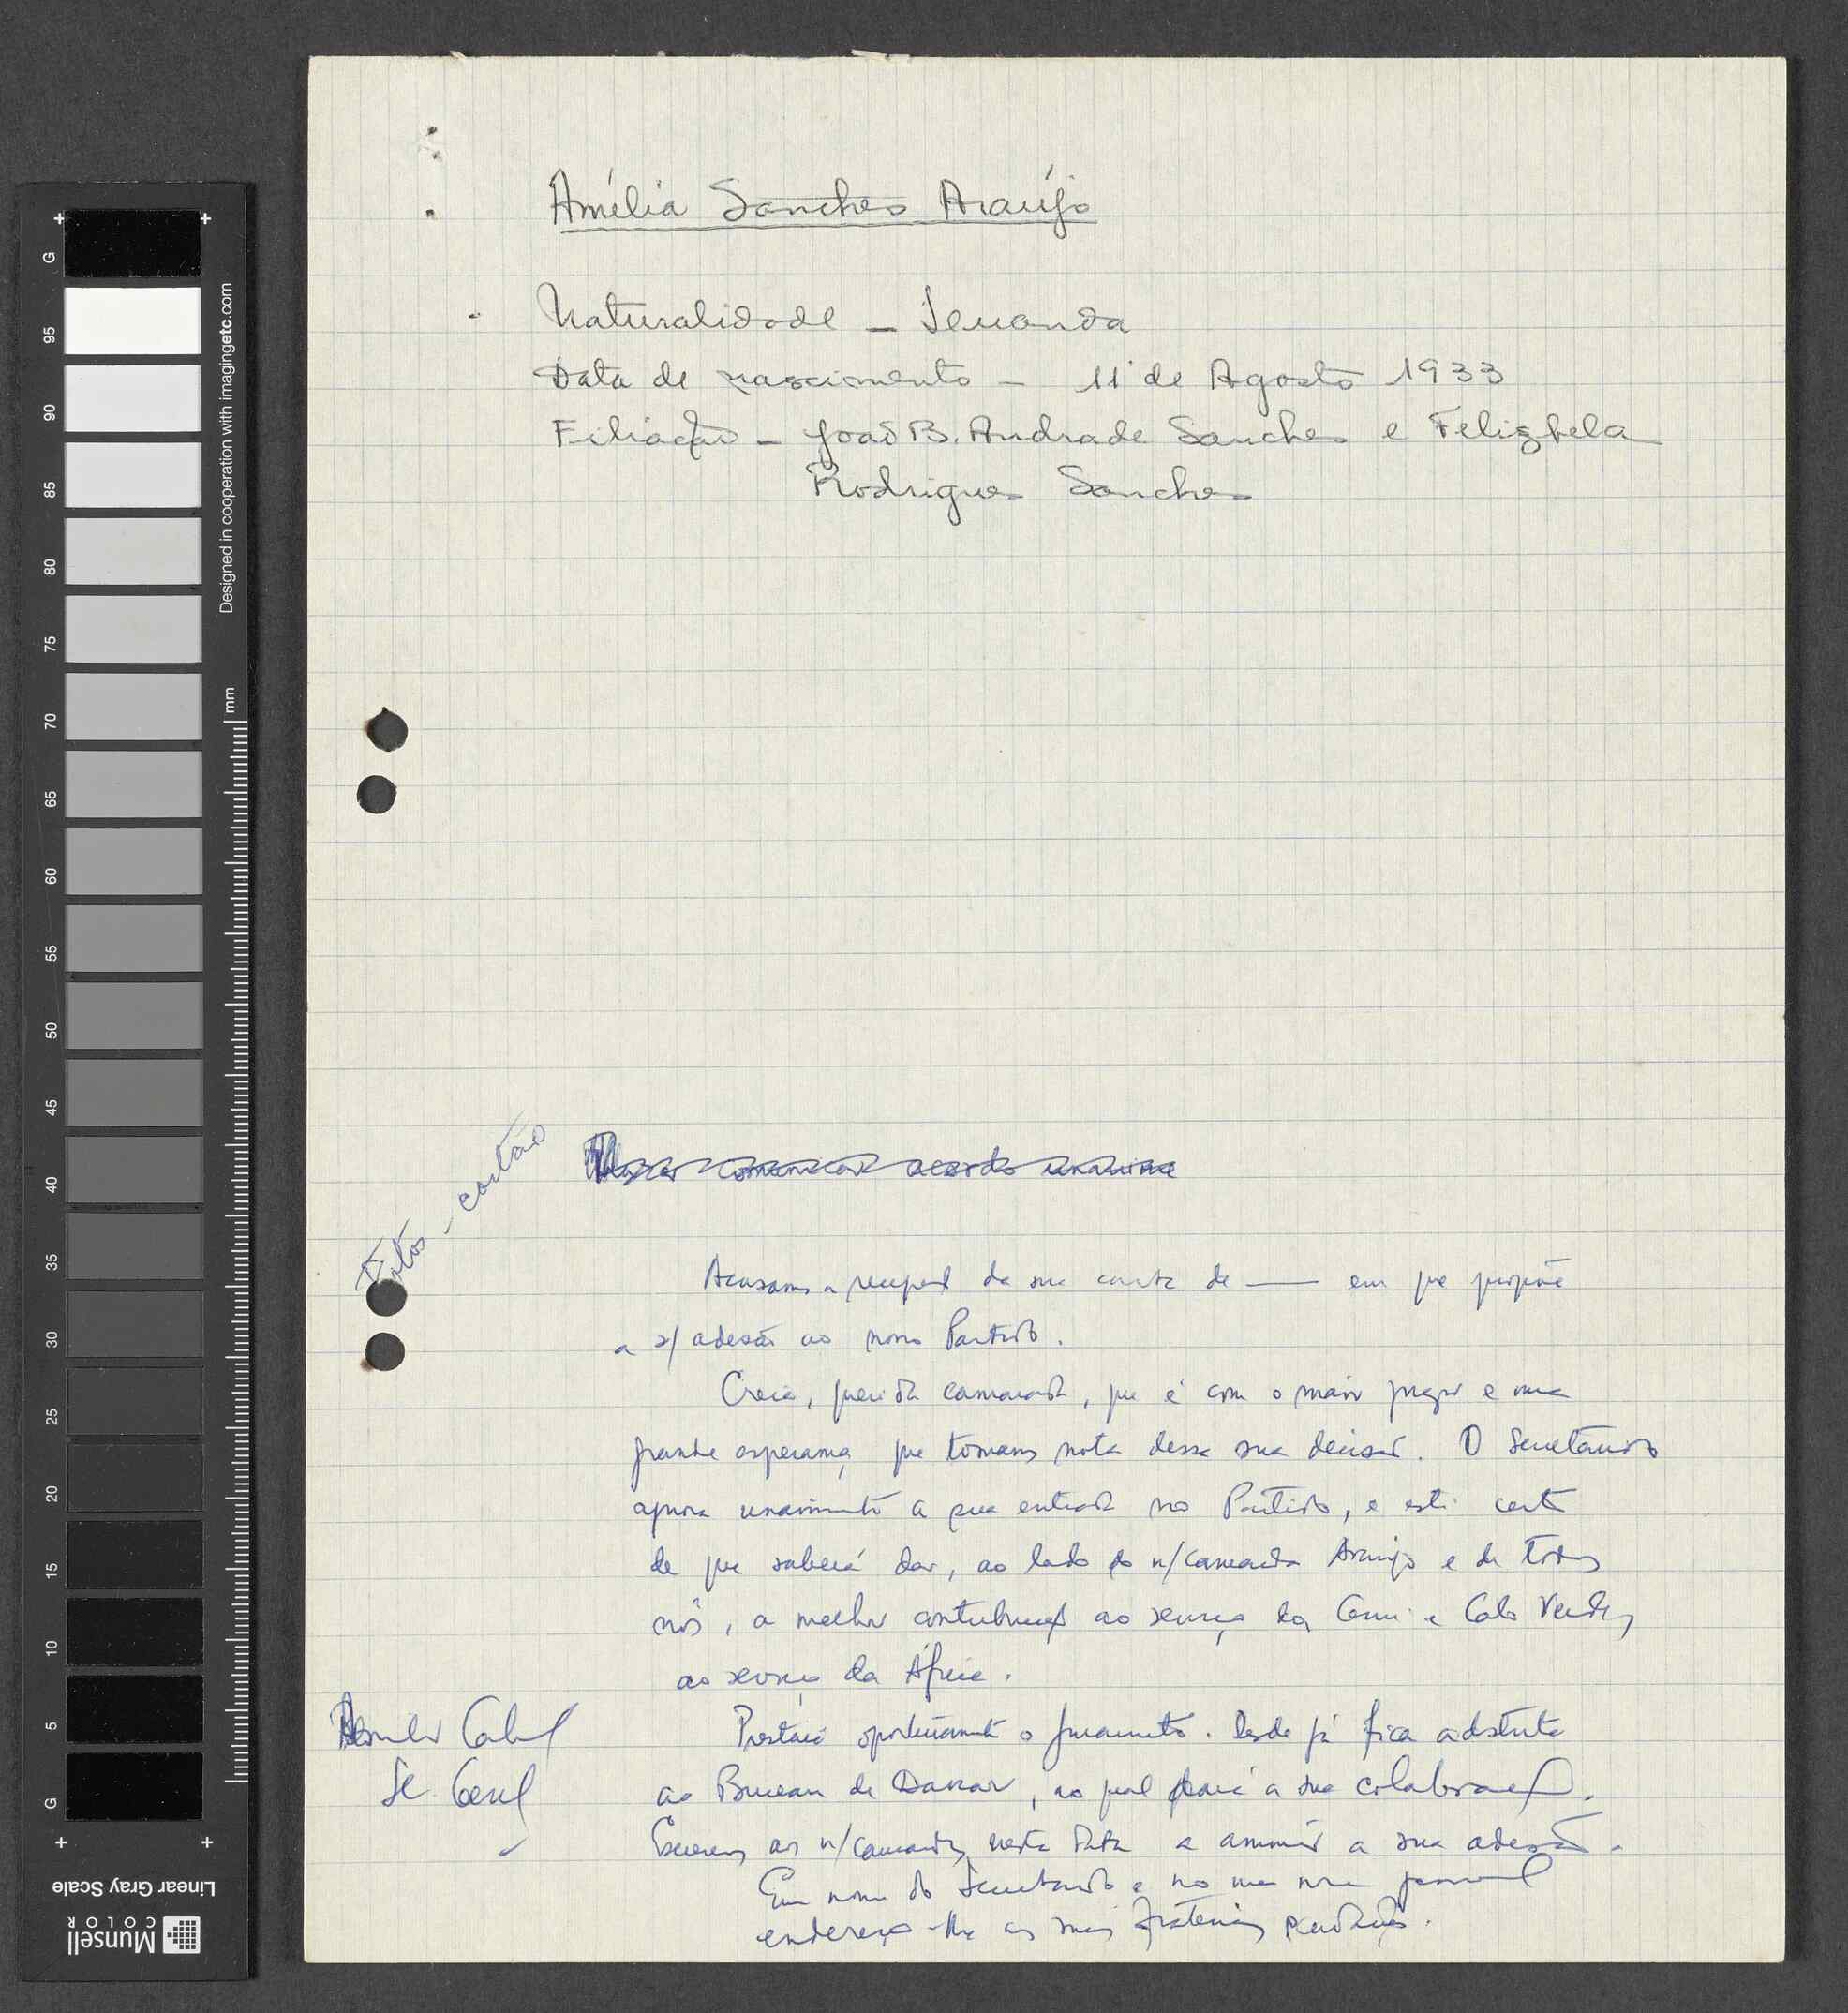 Amélia Sanches Araújo
Naturalidade – Luanda
Data de nascimento – 11 de Agosto 1933
Filiação – João B. Andrade Sanches e Felisbela
Rodrigues Sanches
Fotos – cartão
comunicar acordo unanime
Acusamos a recepção da sua carta de —— em que propõe
a s/ adesão ao nosso Partido.
Creia, querida camarada, que é com o maior prazer e uma
grande esperança que tomamos nota dessa sua decisão. O Secretariado
aprova unanimemente a sua entrada no Partido, e está certo
de que saberá dar, ao lado do n/camarada Araújo e de todos
nós, a melhor contribuição ao serviço da Guiné e Cabo Verde,
ao serviço da África.
Prestará oportunamente o juramento. Desde já fica adstrita
ao Bureau de Dakar, ao qual dará a sua colaboração.
Escrevemos aos n/camaradas nesta data a anunciar a sua adesão.
Em nome do Secretariado e no meu nome pessoal
endereço-lhe as mais fraternais saudações.
Amilcar Cabral
Sec. Geral
G 95 90 85 80 75 70 65 60 55 50 45 40 35 30 25 20 15 10 5 G
mm
Designed in cooperation with imagingetc.com
Linear Gray Scale
Munsell
COLOR